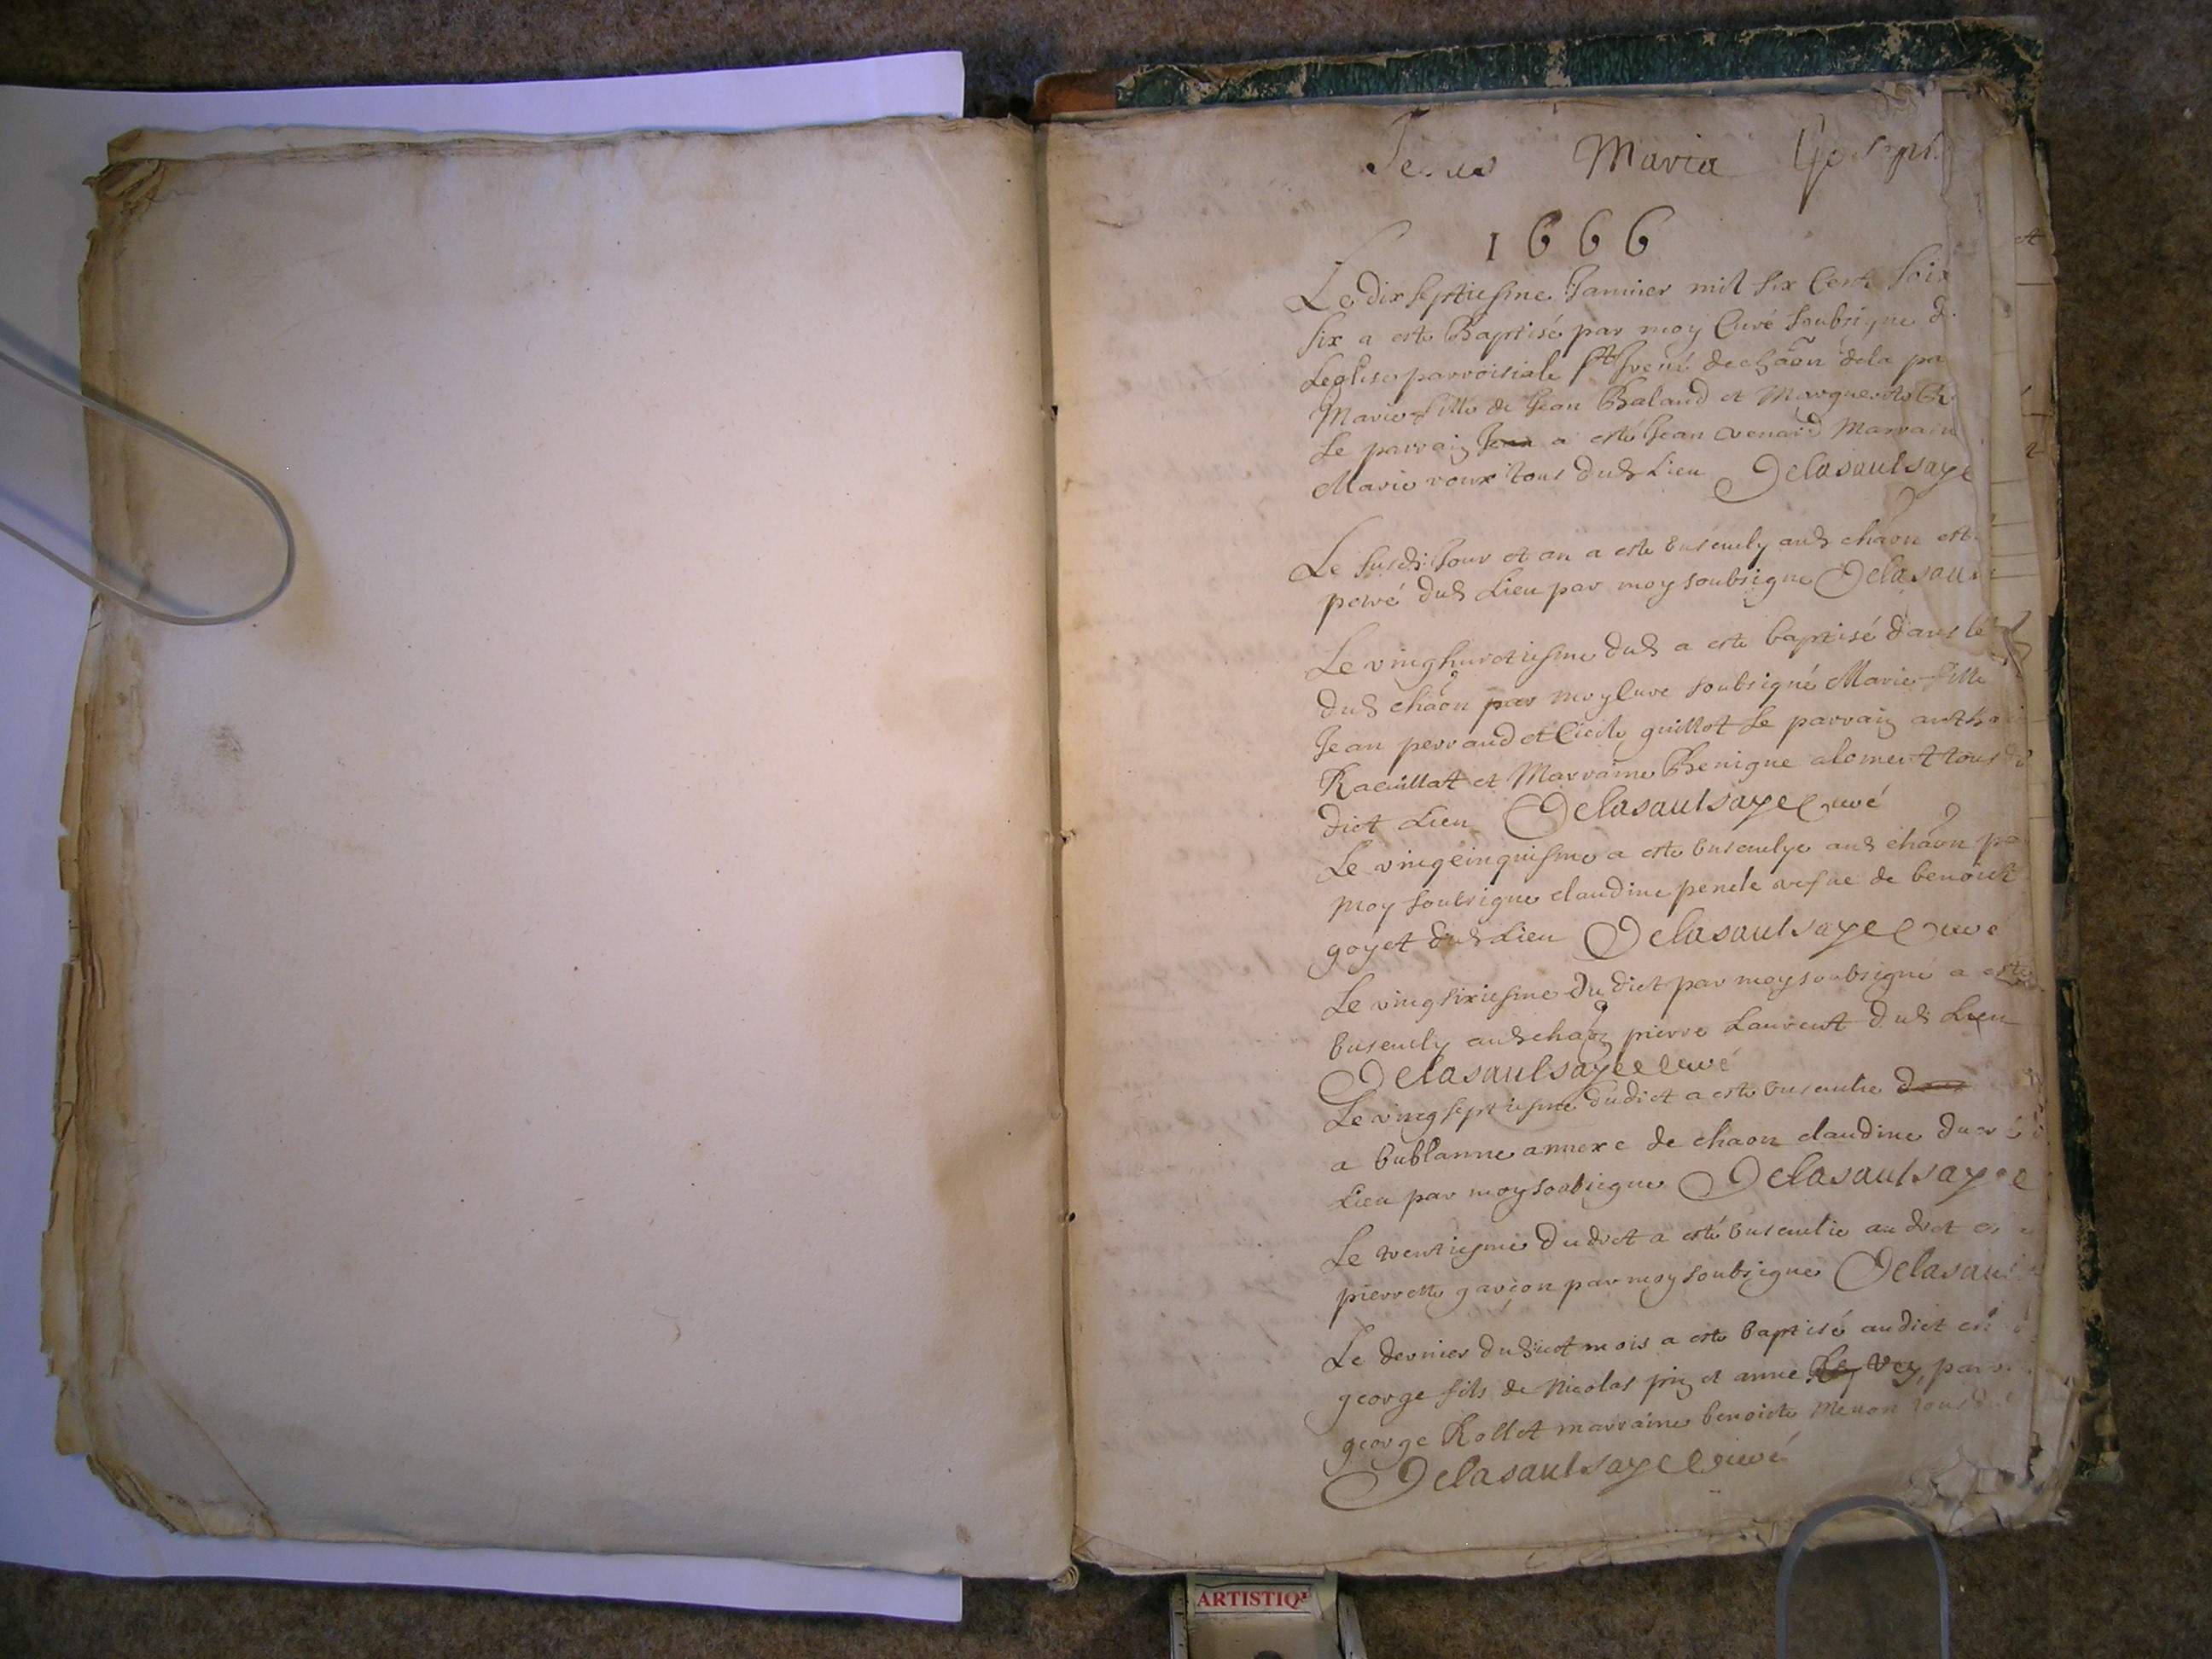 Jesus Maria Joseph
1666
Le dix septiesme Janvier mil six cent soix
six a este Baptisé par moy Curé soubsigné d
Leglise parroisiale St de chaon de la pa
Marie fille de Jean Baland et Marguerite
Le parrain Jean a esté Jean venard Marrain
Marie roux tous dud Lieu Delasaulsaye
Le susdit Jour et an a este ensevely aud chaon
dud Lieu par moy soubsigne Delasau
Le vinghuictiesme dud a este baptisé dans lé
dud chaon par moy Cure soubsigné Marie fille
Jean perraud et Cicile guillot Le parrain antho
Racuillat et Marraine Benigne alomert tous du
dict Lieu Delasaulsaye Curé
Le vingcinquiesme a este ensevelye aud chaon pa
moy soubsigne claudine penele vefve de benoict
goyet dud Lieu Delasaulsaye Curé
Le vingsixiesme du dict par moy soubsigné a este
ensevely aud chaon pierre Laurent dud Lieu
Delasaulsaye Curé
Le vingseptiesme dudict a este ensevelie
a bublanne annexe de chaon claudine
Lieu par moy soubsigne Delasaulsaye
Le trentiesme du dict a esté ensevelie au dict
pierrette garçon par moy soubsigne Delasaul
Le dernier dudict mois a este baptisé au dict
george fils de Nicolas et anne Rey Vey, parr
george Rollet marraine benoiste Menon tous
Delasaulsaye Curé
ARTISTIQ